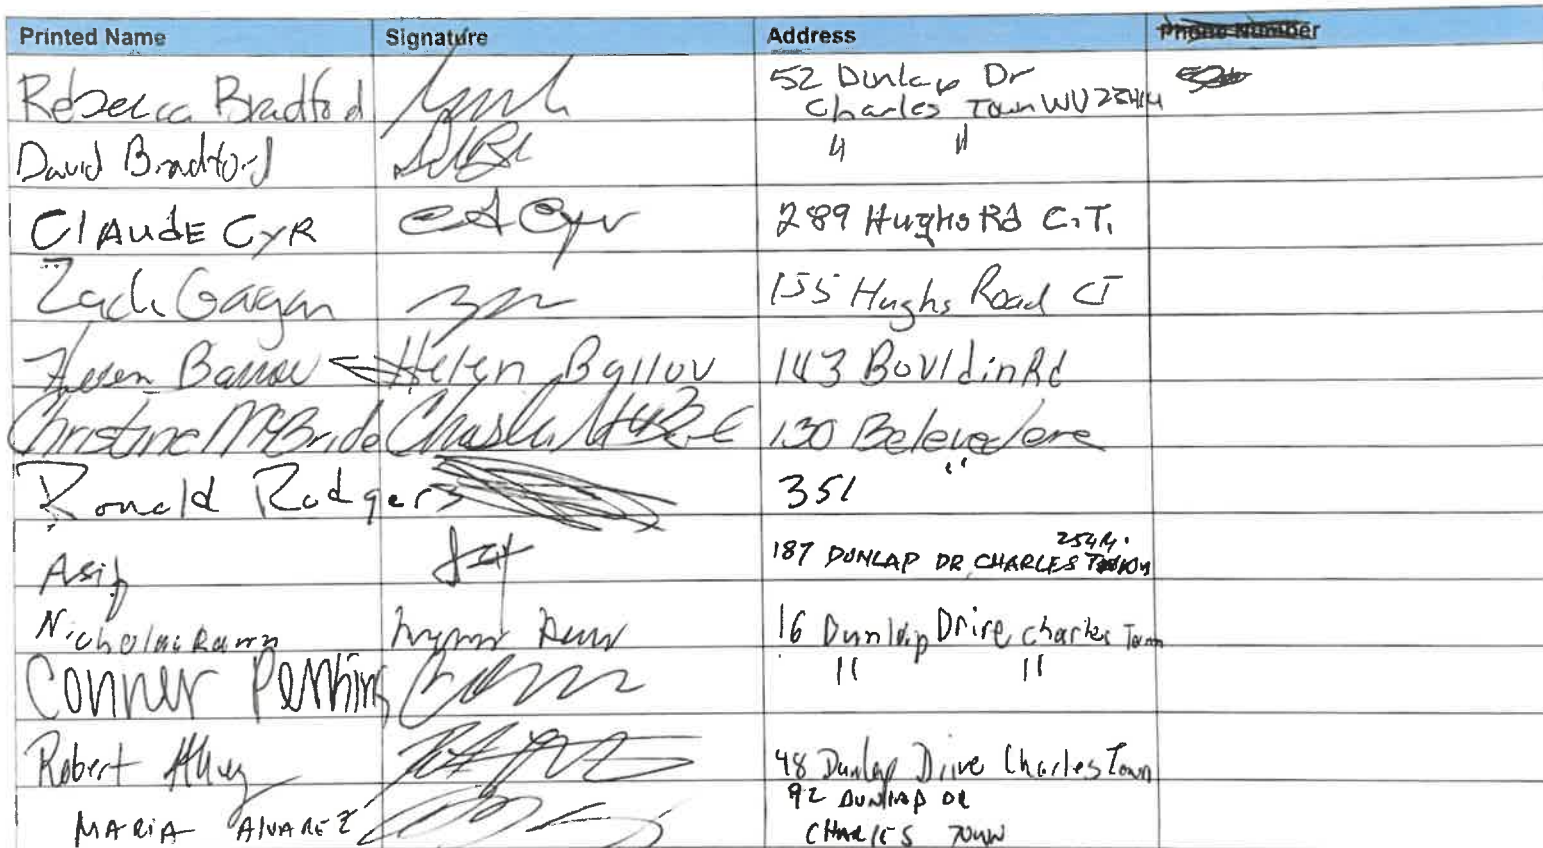 Printed Name Signature Address Phone Number
Rebecca Bradford 52 Dunlap Dr
Charles Town WV 25414
David Bradford " "
Claude Cyr 289 Hughs Rd C.T.
Zach Gagan 155 Hughs Road CT
Helen Ballou 143 Bouldin Rd
Christine McBride 130 Belevedere
Ronald Rodgers 351 "
Asif 187 DUNLAP DR CHARLES TOWN 25414.
Nicholai 16 Dunlap Drive Charles Town
Conner Perkins " "
Robert 48 Dunlap Drive Charles Town
MARIA ALVAREZ 92 DUNLAP DR
CHARLES TOWN